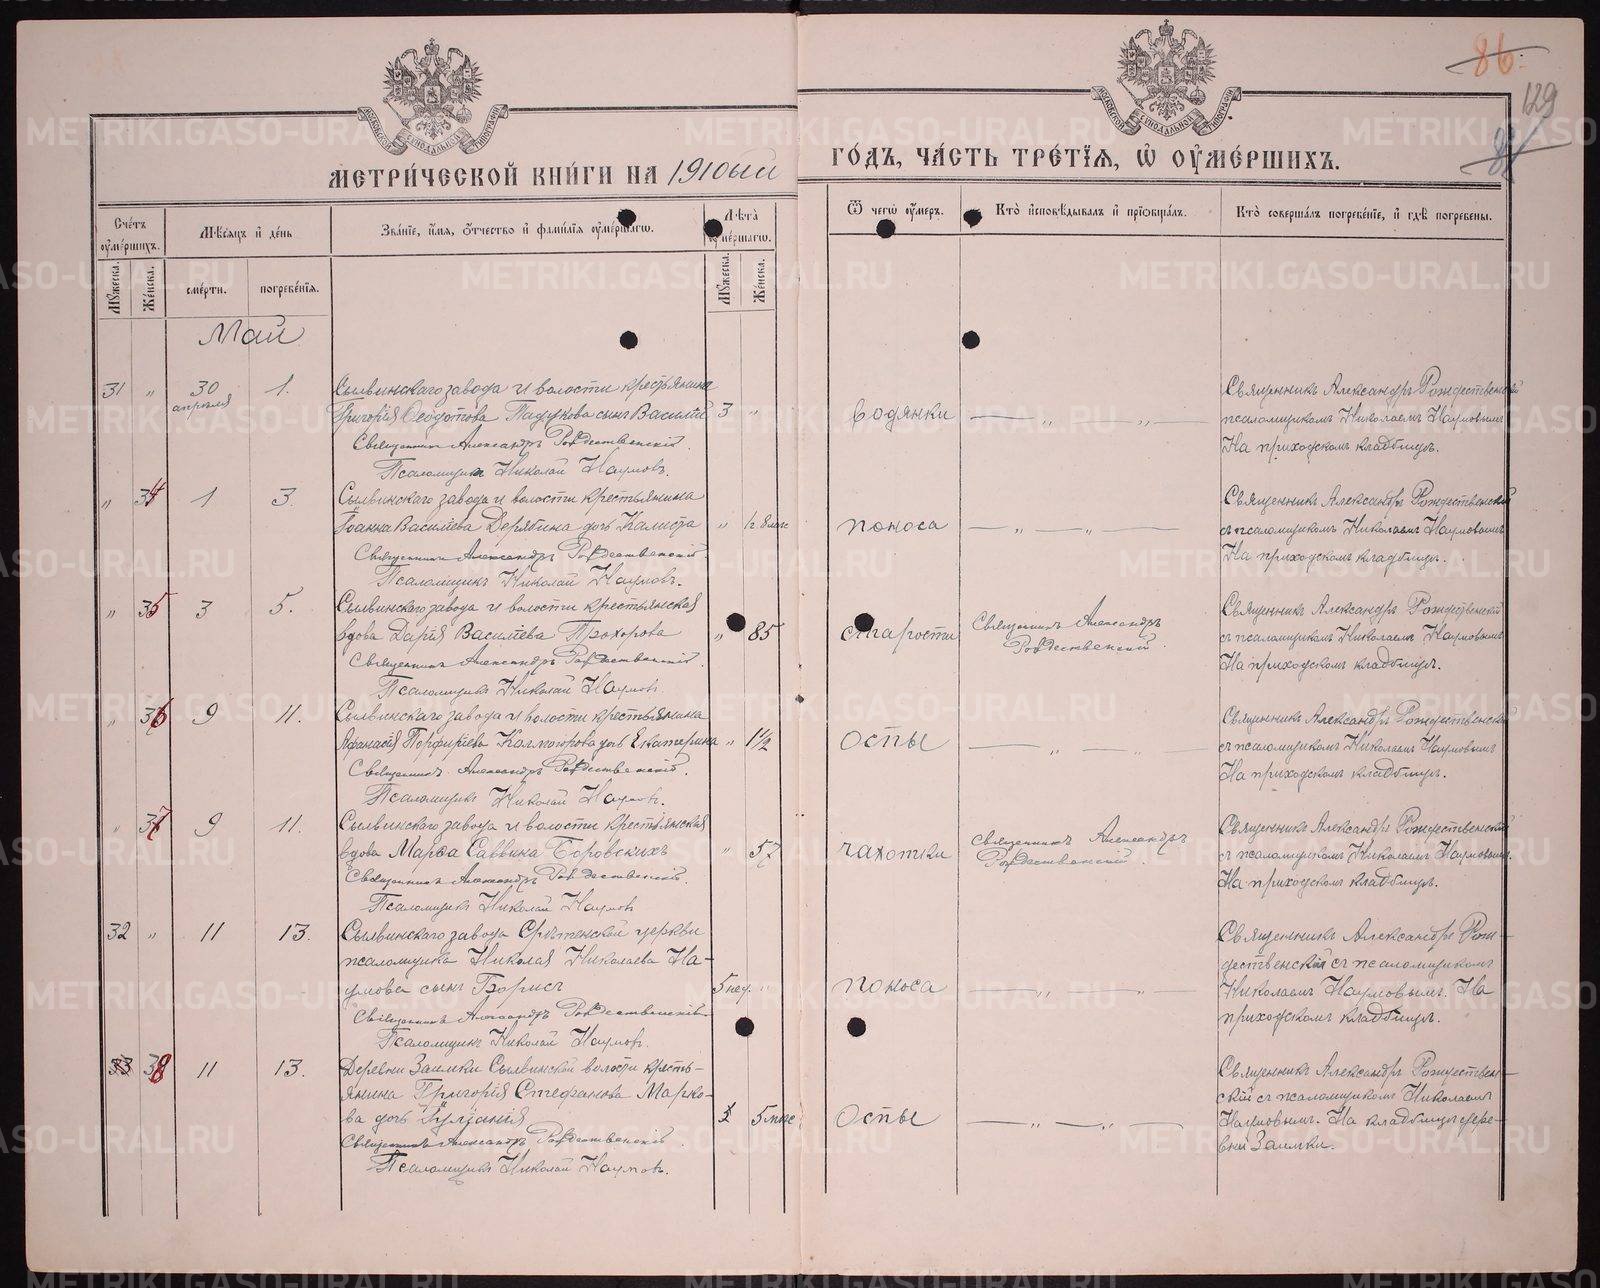 86.
129
МОСКОВСКОЙ СѴНОДАЛЬНОЙ ТИПОГРАФІИ
МОСКОВСКОЙ СѴНОДАЛЬНОЙ ТИПОГРАФІИ
МЕТРИ́ЧЕСКОЙ КНИ́ГИ НА 1910ый ГО́ДЪ, ЧА́СТЬ ТРЕ́ТІѦ, Ѡ ОУМЕ́РШИХЪ.
Сче́тъ оуме́ршихъ.
Мѣ́сѧцъ и де́нь
Зва́нїе, и́мѧ, ѻ́тчество и фами́лїѧ оуме́ршагѡ.
Лѣ́та оуме́ршагѡ.
Ѿ чегѡ̀ оу́меръ.
Кто̀ исповѣ́дывалъ и прїѡбща́лъ.
Кто̀ соверша́лъ погребе́нїе, и гдѣ̀ погребены̀.
Мꙋ́жеска.
Же́нска.
сме́рти.
погребе́нїѧ.
Мꙋ́жеска.
Же́нска.
Май
31 " 30 апрѣля 1. Сылвинскаго завода и волости крестьянина
Григорія Ѳеодотова Падукова сынъ Василій 3 " водянки — " — " —
Священникъ Александръ Рождественскій.
Псаломщикъ Николай Наумовъ.
Священникъ Александръ Рождественскій
псаломщикомъ Николаемъ Наумовымъ
На приходскомъ кладбищѣ.
" 34 1 3. Сылвинскаго завода и волости крестьянина
Іоанна Васильева Дерябина дочь Калиста " поноса — " — " —
Священникъ Александръ Рождественскій.
Псаломщикъ Николай Наумовъ.
Священникъ Александръ Рождественскій
съ псаломщикомъ Николаемъ Наумовымъ
На приходскомъ кладбищѣ.
" 35 3 5. Сылвинскаго завода и волости крестьянская
вдова Дарія Василіева Прохорова " 85 старости
Священникъ Александръ Рождественскій.
Псаломщикъ Николай Наумовъ
Священникъ Александръ
Рождественскій.
Священникъ Александръ Рождественскій
съ псаломщикомъ Николаемъ Наумовымъ
На приходскомъ кладбищѣ.
" 36 9 11. Сылвинскаго завода и волости крестьянина
Аѳанасія Порфиріева Колмогорова дочь Екатерина " 1½ Оспы — " — " —
Священникъ Александръ Рождественскій.
Псаломщикъ Николай Наумовъ.
Священникъ Александръ Рождественскій
съ псаломщикомъ Николаемъ Наумовымъ
На приходскомъ кладбищѣ.
" 37 9 11. Сылвинскаго завода и волости крестьянская
вдова Марѳа Саввина Боровскихъ " 57 чахотки
Священникъ Александръ Рождественскій.
Псаломщикъ Николай Наумовъ
Священникъ Александръ
Рождественскій.
Священникъ Александръ Рождественскій
съ псаломщикомъ Николаемъ Наумовымъ.
На приходскомъ кладбищѣ.
32 " 11 13. Сылвинскаго завода Срѣтенской церкви
псаломщика Николая Николаева На-
умова сынъ Борисъ 5 нед. " поноса — " — " —
Священникъ Александръ Рождественскій.
Псаломщикъ Николай Наумовъ.
Священникъ Александръ Рож-
дественскій съ псаломщикомъ
Николаемъ Наумовымъ. На
приходскомъ кладбищѣ.
33 38 11 13. Деревни Заимки Сылвинской волости кресть-
янина Григорія Стефанова Марко-
ва дочь Іуліанія 5 мѣс Оспы — " — " —
Священникъ Александръ Рождественскій
Псаломщикъ Николай Наумовъ.
Священникъ Александръ Рождествен-
скій съ псаломщикомъ Николаемъ
Наумовымъ. На кладбищѣ дере-
вни Заимки.
METRIKI.GASO-URAL.RU